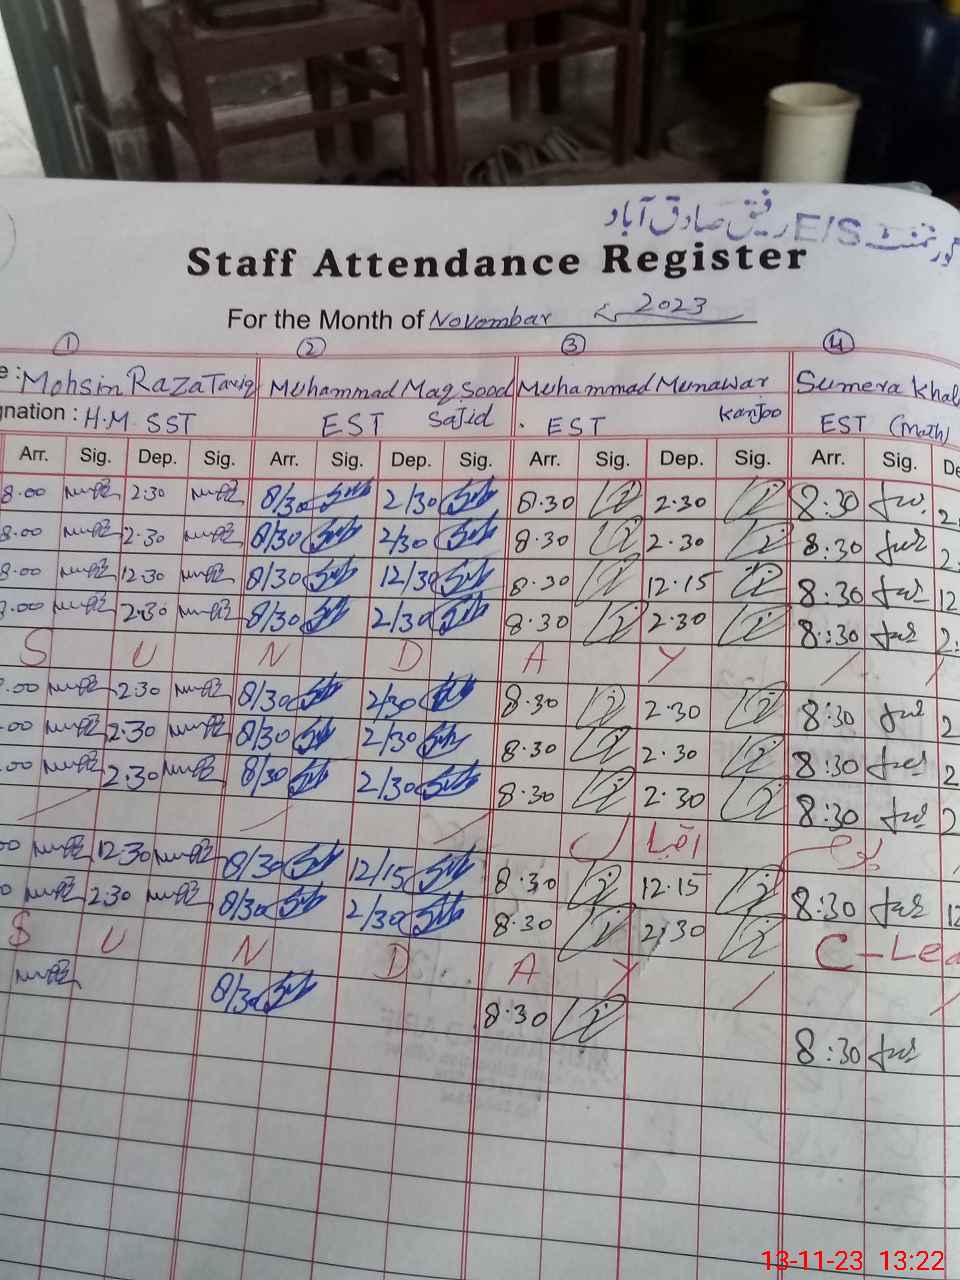 گورنمنٹ E/S رفیق صادق آباد
Staff Attendance Register
For the Month of Novombar 2023
1 2 3 4
e : Mohsin Raza Tariq Muhammad Maqsood Muhammad Munawar Sumera Khal
gnation : H.M SST EST Sajid EST Kanjoo EST (Math)
Arr. Sig. Dep. Sig. Arr. Sig. Dep. Sig. Arr. Sig. Dep. Sig. Arr. Sig. De
8.00 2:30 8/30 2/30 8.30 2.30 8:30 2
8.00 2.30 8/30 2/30 8.30 2.30 8.30 2
8.00 12.30 8/30 12/30 8.30 12.15 8:30 12
8.00 2.30 8/30 2/30 8.30 2.30 8:30 2
S U N D A Y
.00 2.30 8/30 2/30 8.30 2.30 8:30 2
.00 2.30 8/30 2/30 8.30 2.30 8:30 2
.00 2.30 8/30 2/30 8.30 2.30 8:30 2
یوم اقبال
00 12.30 8/30 12/15 8.30 12.15 8:30 12
0 2.30 8/30 2/30 8.30 2.30 C-Lea
S U N D A Y
8/30 8.30 8:30
13-11-23 13:22